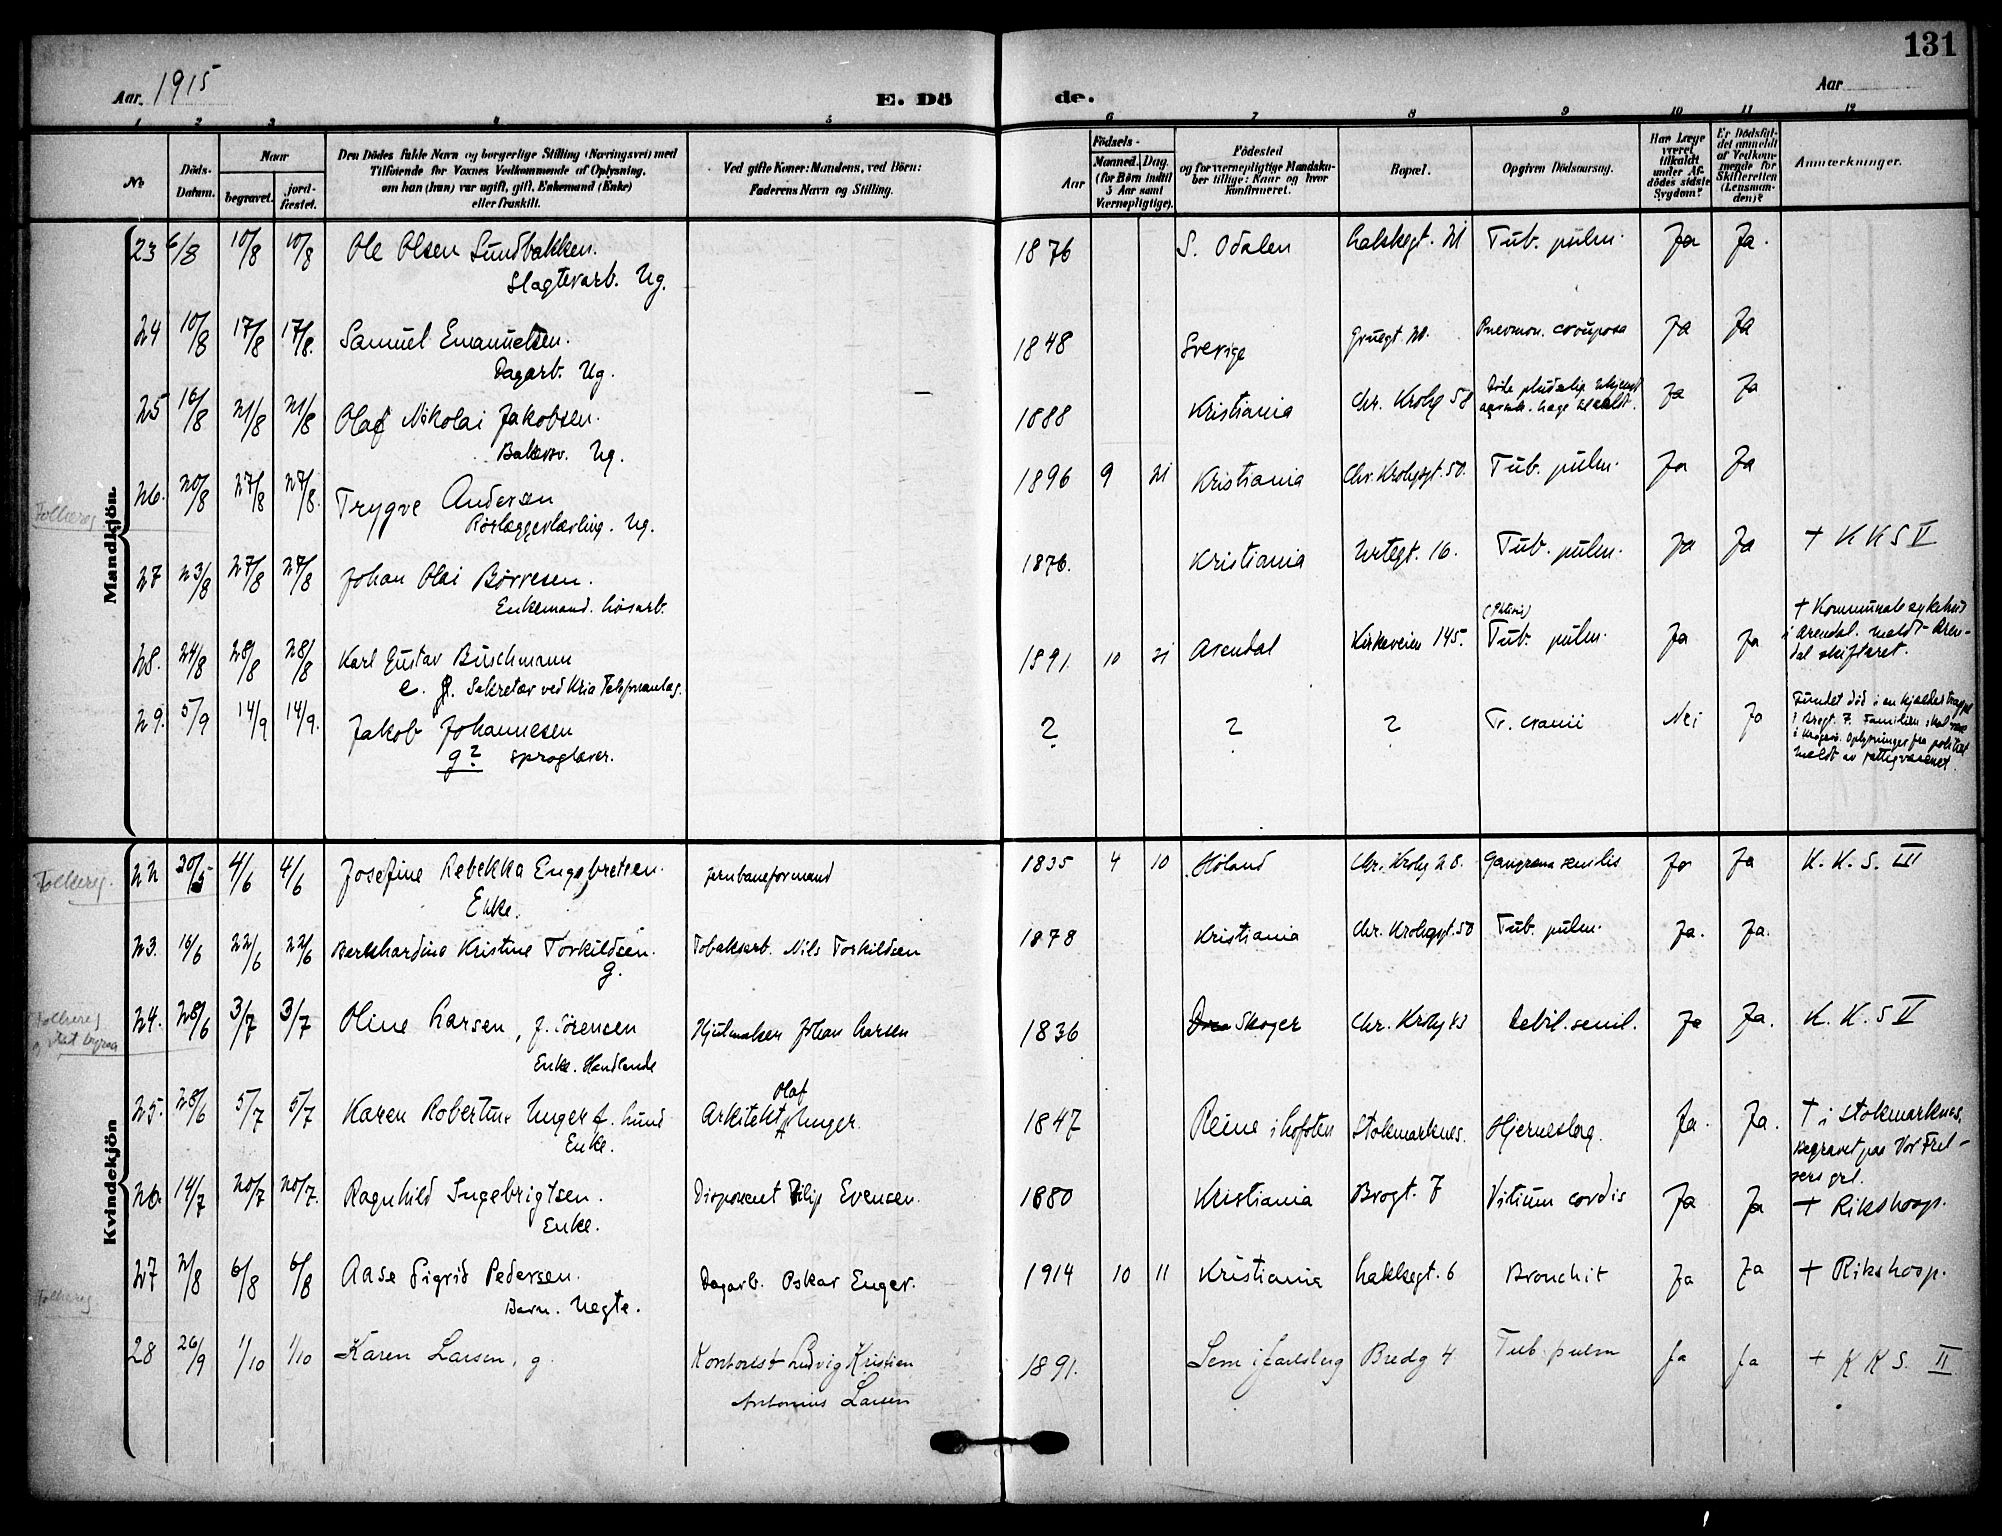 131
Aar. 1915
E. Dö
de.
Aar
1 2 3 4 5 6 7 8 9 10 11 12
No
Döds-Datum.
Naar
begravet.
jord-fæstet.
Den Dödes fulde Navn og borgerlige Stilling (Næringsvei) med
Tilföiende for Voxnes Vedkommende af Oplysning,
om han (hun) var ugift, gift, Enkemand (Enke)
eller fraskilt.
Ved gifte Koner: Mandens, ved Börn:
Faderens Navn og Stilling.
Födsels-
Aar
Maaned. Dag.
(for Børn indtil
5 Aar samt
Værnepligtige).
Födested
og for værnepligtige Mandsku-
ber tillige: Naar og hvor
konfirmeret.
Bopæl.
Opgiven Dödsaarsag.
Har Læge
været
tilkaldt
under Af-
dödes sidste
Sygdom?
Er Dödsfal-
det anmeldt
af Vedkom-
mende for
Skifteretten
(Lensman-
den)?
Anmærkninger.
Mandkjön.
23 6/8 10/8 10/8 Ole Olsen Sundbakken. 1876 S. Odalen Lakkegt. 21 Tub. pulm. Ja Ja.
Slagterarb. Ug.
24 10/8 17/8 17/8. Samuel Emanuelsen. 1848 Sverige Gruegt. 20. Pnevmon. crouposa Ja Ja
Dagarb. Ug.
25 16/8 21/8 21/8 Olaf Nikolai Jakobsen. 1888 Kristiania Chr. Krohg 58 Døde pludselig Ja Ja
Bakersv. Ug.
Folkereg.
26. 20/8 27/8 27/8. Trygve Andersen 1896 9 21 Kristiania Chr. Krohgsgt. 50. Tub. pulm. Ja Ja
Rørlæggerlærling. Ug.
27 23/8 27/8 27/8 Johan Olai Børresen. 1876. Kristiania Urtegt. 16. Tub. pulm. Ja Ja + K K S V
Enkemand. Løsarb.
28. 24/8 28/8 28/8 Karl Gustav Buschmann 1891. 10 21 Arendal Kirkeveien 145. (Phtisis) Tub. pulm. Ja Ja + Kommunale sykehus
i Arendal. meldt Aren-
dal skifteret.
e. g. Sekretær ved Kria Telefonanlæg.
29. 5/9 14/9 14/9. Jakob Johannesen ? ? ? Fr. cranii Nei Ja Fundet død i en kjældertrappe
i Brogt. 7. Familien skal være
i Kragerø. Oplysninger fra politiet
meldt av fattigvæsenet.
g? sproglærer.
Kvindekjön
Folkereg.
22 30/5 4/6 4/6 Josefine Rebekka Engebretsen. jernbaneformand 1835 4 10 Høland Chr. Krohg 28. Gangræna senilis Ja Ja K. K. S. III
Enke.
23. 16/6 22/6 22/6 Bernhardine Kristine Torkildsen. Tobaksarb. Nils Torkildsen 1878 Kristiania Chr. Krohgsgt. 50 Tub. pulm. Ja. Ja.
g.
Folkereg
24. 28/6 3/7 3/7 Oline Larsen, f. Sørensen Hjulmaker Johan Larsen 1836 Skoger Chr. Krohg 43 Debil. senil. Ja Ja. K. K. S V
Enke. Handlende
25. 28/6 5/7 5/7 Karen Robertine Unger f. Lund Arkitekt Olaf Unger. 1847 Reine i Lofoten Stokmarknes. Hjerneslag. Ja. Ja. + i Stokmarknes.
Begravet paa Vor Frel-
sers grl.
Enke.
26. 14/7 20/7 20/7. Ragnhild Ingebrigtsen. Disponent Filip Evensen. 1880 Kristiania Brogt. 7 Vitium cordis Ja Ja + Rikshosp.
Enke.
27 2/8 6/8 6/8 Aase Sigrid Pedersen. Dagarb. Oskar Enger. 1914 10 11 Kristiania Lakkegt. 6 Bronchit Ja Ja + Rikshosp.
Barn. Uegte.
Folkereg
28 26/9 1/10 1/10 Karen Larsen, g. Kontorist Ludvig Kristian 1891. Sem i Jarlsberg Bredg 4 Tub. pulm Ja Ja + K K S. II
Antonius Larsen